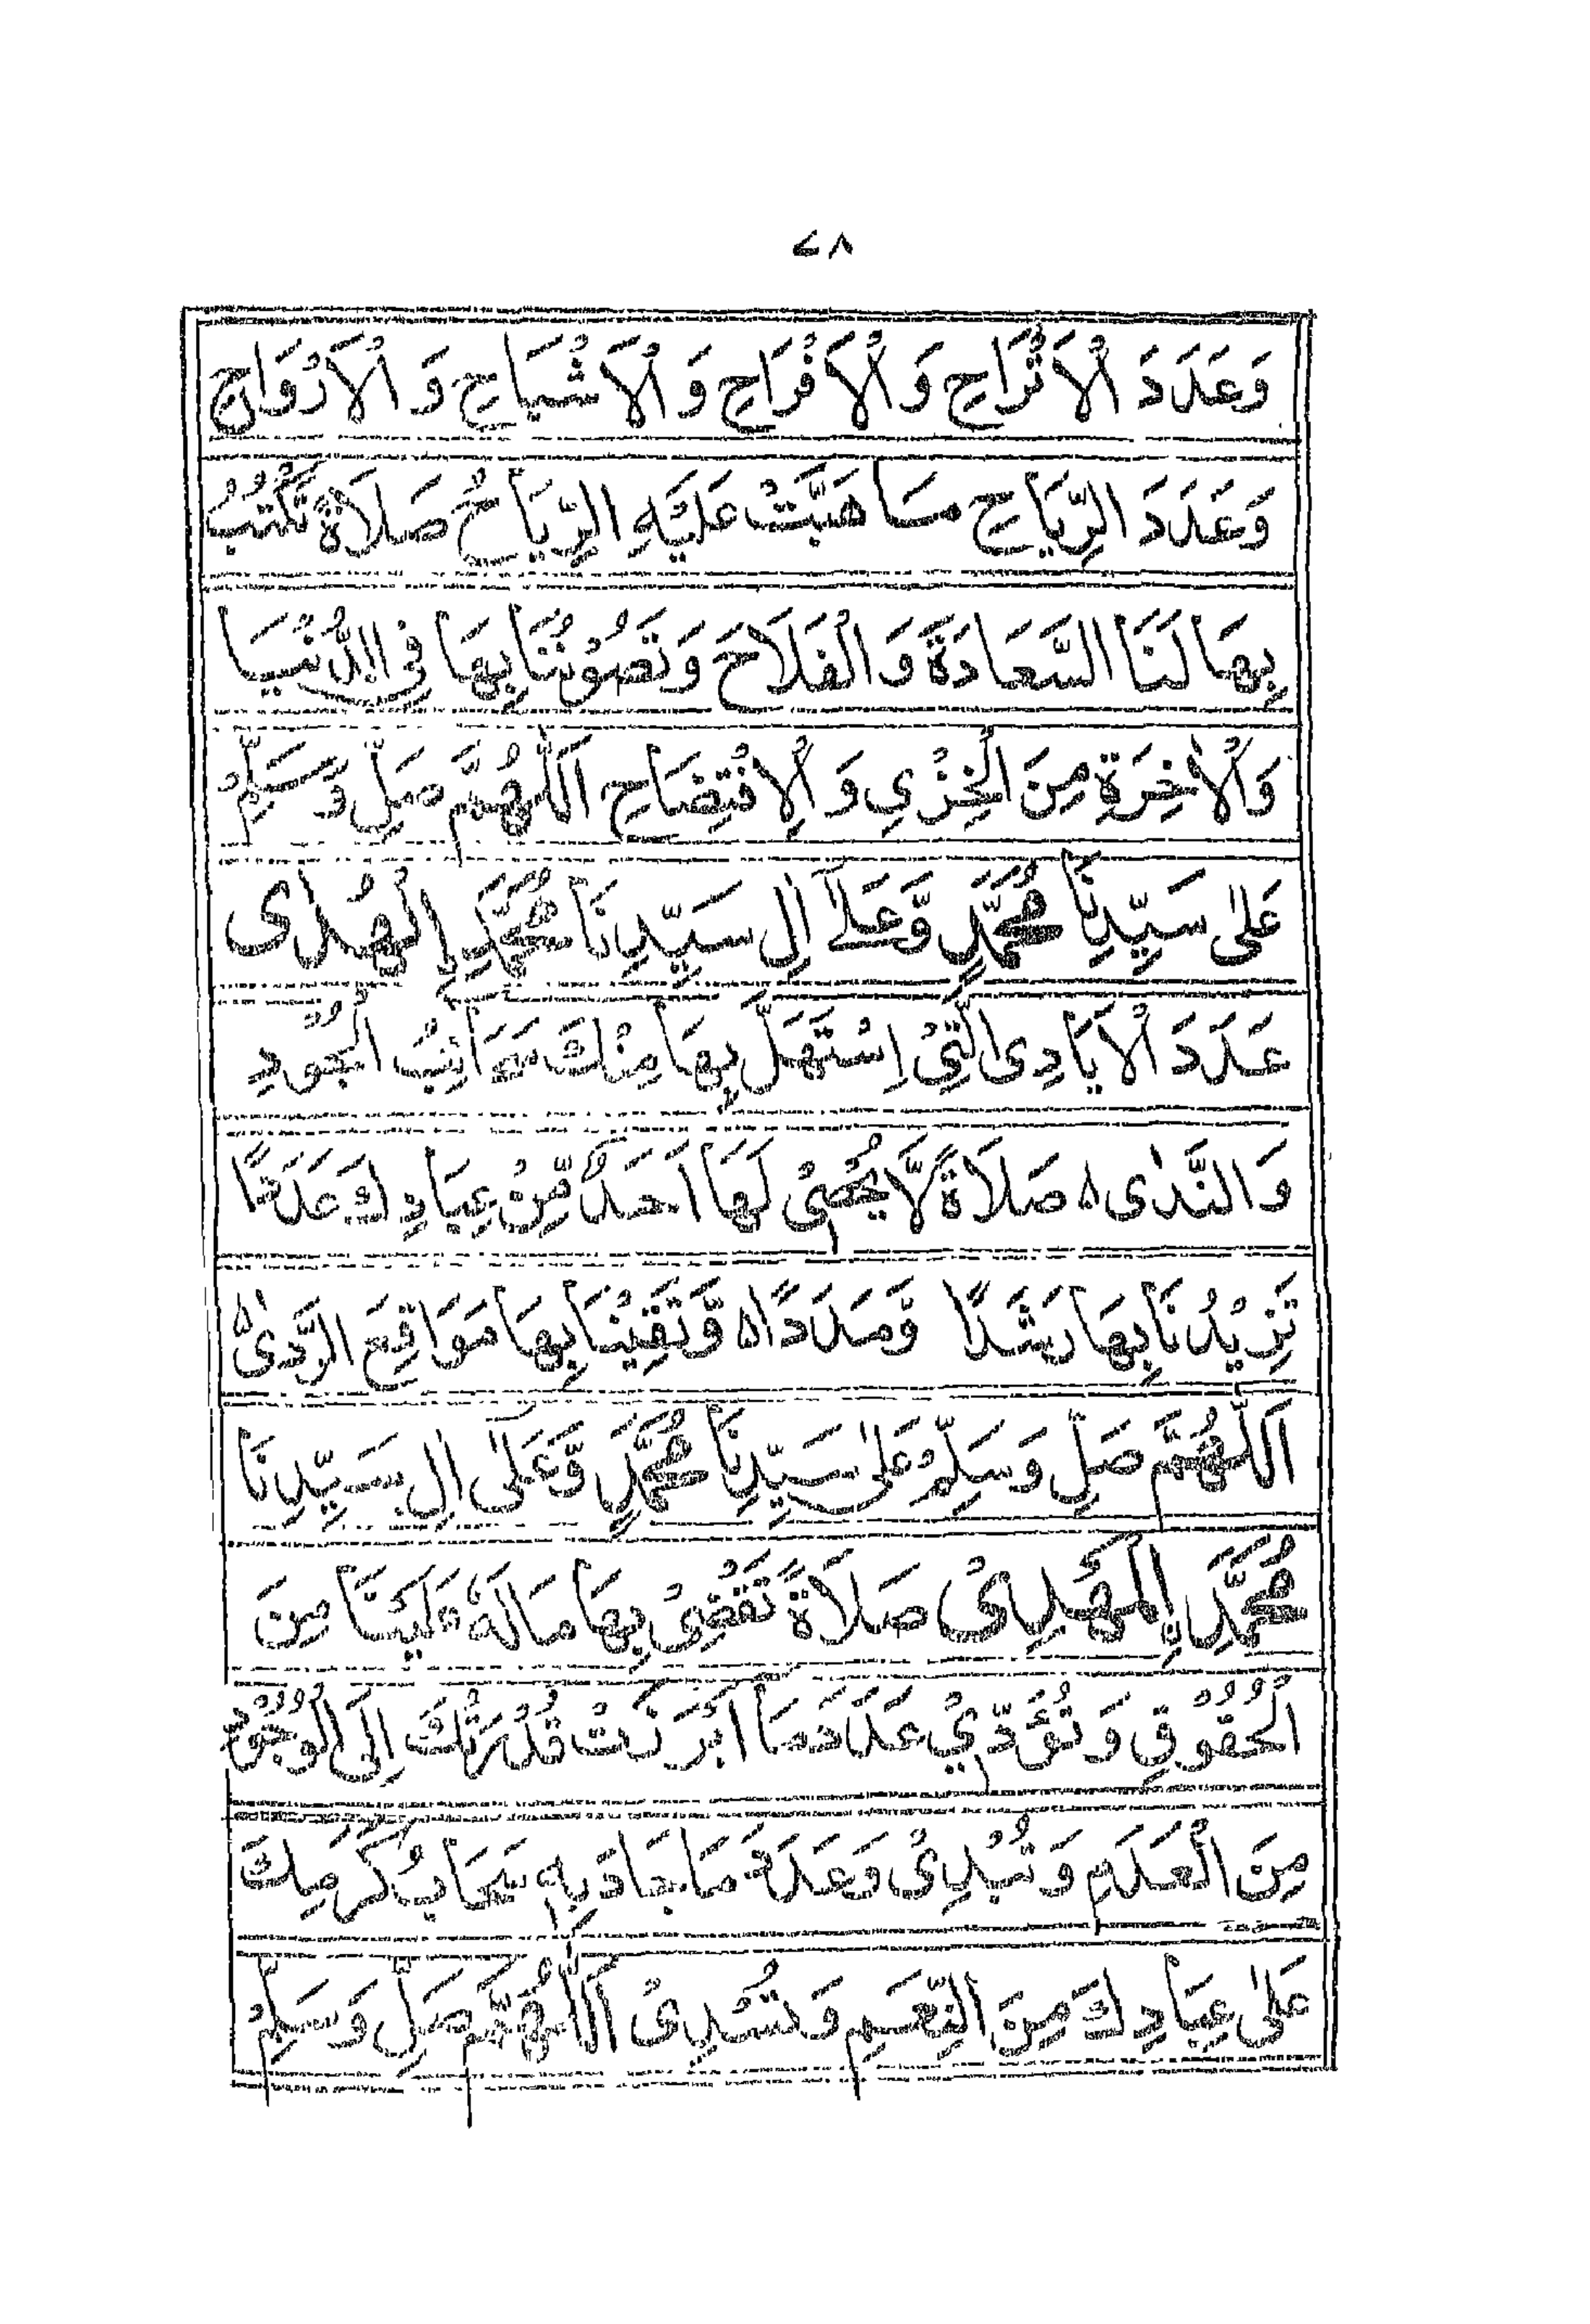 ٧٨
وَعَدَدَ الْاَتْرَاحِ وَالْاَفْرَاحِ وَالْاَشْبَاحِ وَالْاَرْوَاحِ
وَعَدَدَ الرِّيَاحِ مَا هَبَّتْ عَلَيْهِ الرِّيَاحُ صَلَاةً تَكْتُبُ
بِهَا لَنَا السَّعَادَةَ وَالْفَلَاحَ وَتَصُوْنُنَا بِهَا فِي الدُّنْيَا
وَالْاٰخِرَةِ مِنَ الْخِزْيِ وَالْاِفْتِضَاحِ اَللّٰهُمَّ صَلِّ وَسَلِّمْ
عَلٰى سَيِّدِنَا مُحَمَّدٍ وَّعَلٰٓى اٰلِ سَيِّدِنَا مُحَمَّدِ اِلْهُدٰى
عَدَدَ الْاَيَادِى الَّتِىْ اِسْتَهَلَّ بِهَا مِنْكَ سَحَائِبُ الْجُوْدِ
وَالنَّدٰى ه صَلَاةً لَّا يُحْصِىْ لَهَا اَحَدٌ مِّنْ عِبَادِكَ عَدَدًا
تَزِيْدُنَا بِهَا رَشَدًا وَّمَدَدًا ه وَّتَقِيْنَا بِهَا مَوَاقِعَ الرَّدٰى ه
اَللّٰهُمَّ صَلِّ وَسَلِّمْ عَلٰى سَيِّدِنَا مُحَمَّدٍ وَّعَلٰٓى اٰلِ سَيِّدِنَا
مُحَمَّدِ نِ الْمَهْدِىْ صَلَاةً تَقْضِىْ بِهَا مَا لَهٗ عَلَيْنَا مِنَ
الْحُقُوْقِ وَتُؤَدِّيْ عَدَدَ مَا اَبْرَزَتْ قُدْرَتُكَ اِلَى الْوُجُوْدِ
مِنَ الْعَدَمِ وَتُبْدِىْ وَعَدَدَ مَا جَادَ بِهٖ سَحَابُ كَرَمِكَ
عَلٰى عِبَادِكَ مِنَ النِّعَمِ وَتُسْدِىْ اَللّٰهُمَّ صَلِّ وَسَلِّمْ